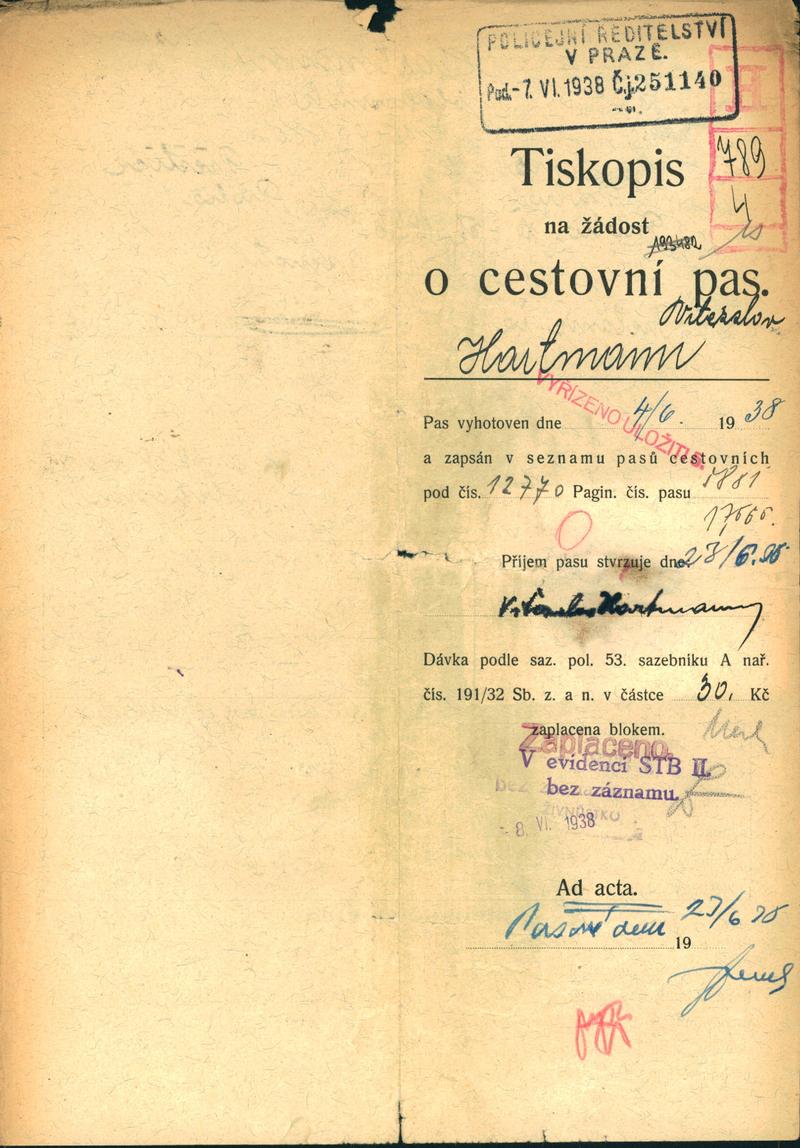 POLICEJNÍ ŘEDITELSTVÍ
V PRAZE.
Pod. -7. VI. 1938 Č.j. 251140
H
789
4
Tiskopis
na žádost
o cestovní pas.
Vítězslav
Hartmann
VYŘÍZENO ULOŽITI
Pas vyhotoven dne 4/6. 1938
a zapsán v seznamu pasů cestovních
pod čís. 12770 Pagin. čís. pasu
Příjem pasu stvrzuje dne 23/6.
Hartmann
Dávka podle saz. pol. 53. sazebníku A nař.
čís. 191/32 Sb. z. a n. v částce 30. Kč
zaplacena blokem.
Zaplaceno.
V evidenci STB II.
bez záznamu.
- 8. VI. 1938
Ad acta.
23/6
19